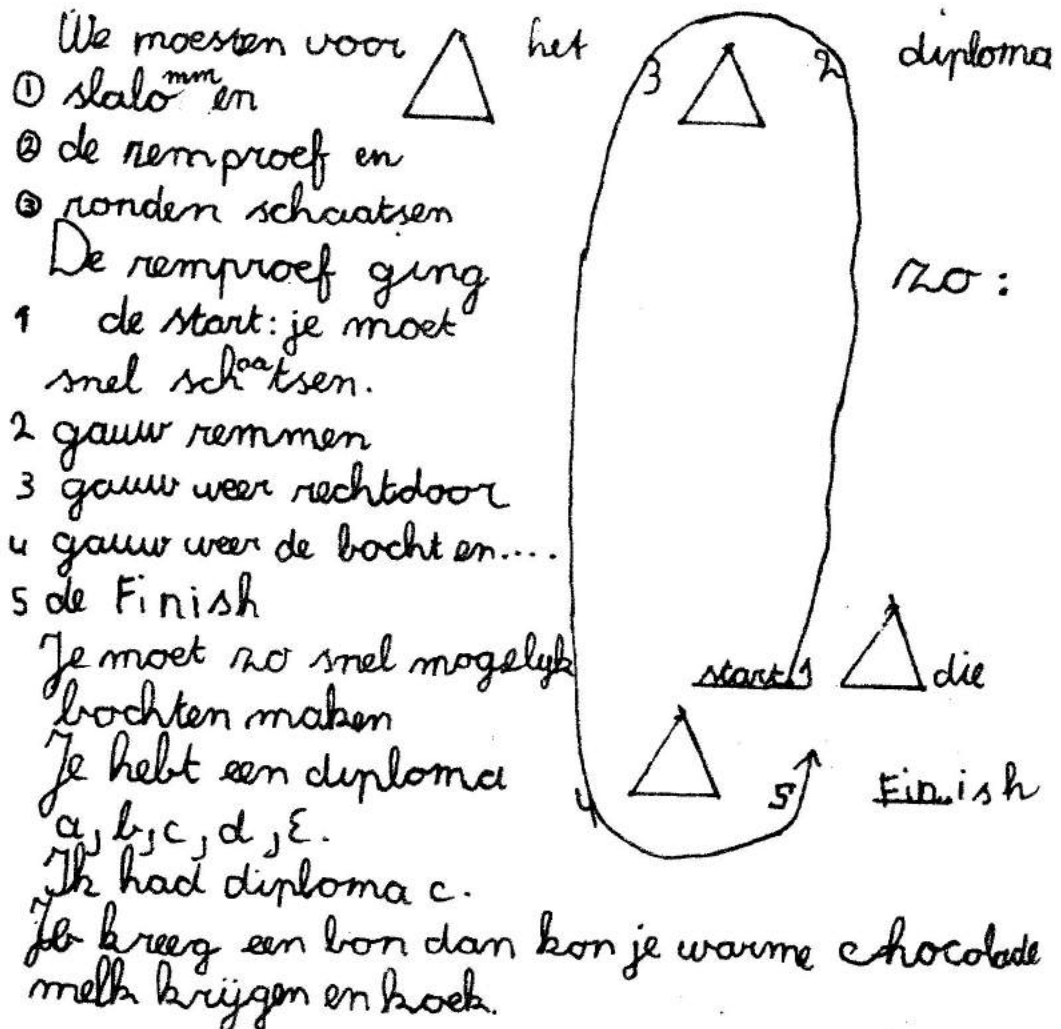 We moesten voor het diploma
① slalommen
② de remproef en
③ ronden schaatsen
De remproef ging zo:
1 de start: je moet
snel schaatsen.
2 gauw remmen
3 gauw weer rechtdoor
4 gauw weer de bocht en....
5 de Finish
Je moet zo snel mogelyk
bochten maken
Je hebt een diploma
a, b, c, d, E.
Ik had diploma c.
Ik kreeg een bon dan kon je warme chocolade
melk krijgen en koek.
3 2
start 1 die
4 5 Finish